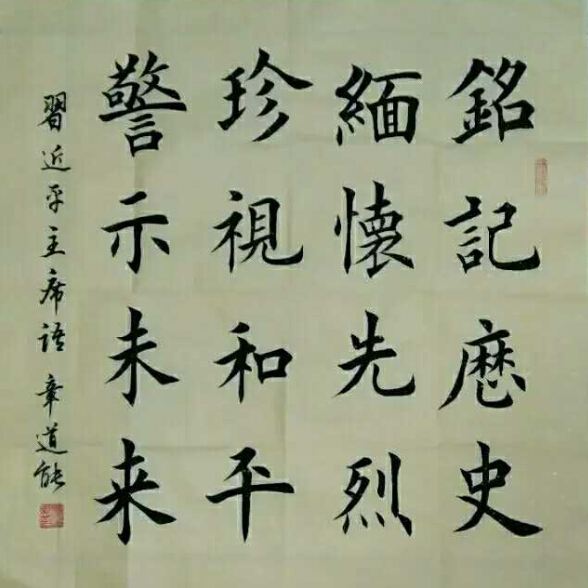 銘記歷史
緬懷先烈
珍視和平
警示未来
習近平主席语 章道能